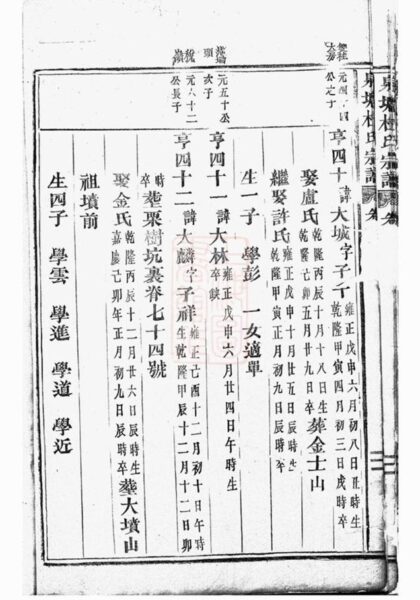 泉塘杜氏宗譜
元四十四
公之子
亨四十 諱大城字子千 雍正戊申六月初八日丑時生
乾隆甲寅四月初三日戌時卒
娶盧氏 乾隆丙辰十月十八日生
乾隆己卯五月廿九日卒 葬金士山
繼娶許氏 雍正戊申十月廿五日辰時生
乾隆甲寅正月初九日辰時卒
生一子 學彭 一女適單
元五十公
次子
亨四十一 諱大林 雍正戊申六月廿四日午時生
卒缺
元六十二
公長子
亨四十二 諱大麟字子祥 雍正己酉十二月初十日午時
生乾隆甲辰十二月十二日卯
時卒 葬栗樹坑裏眷七十四號
娶金氏 乾隆丙辰十二月廿六日辰時生
嘉慶己卯年正月初九日辰時卒 葬大墳山
祖墳前
生四子 學雲 學進 學道 學近